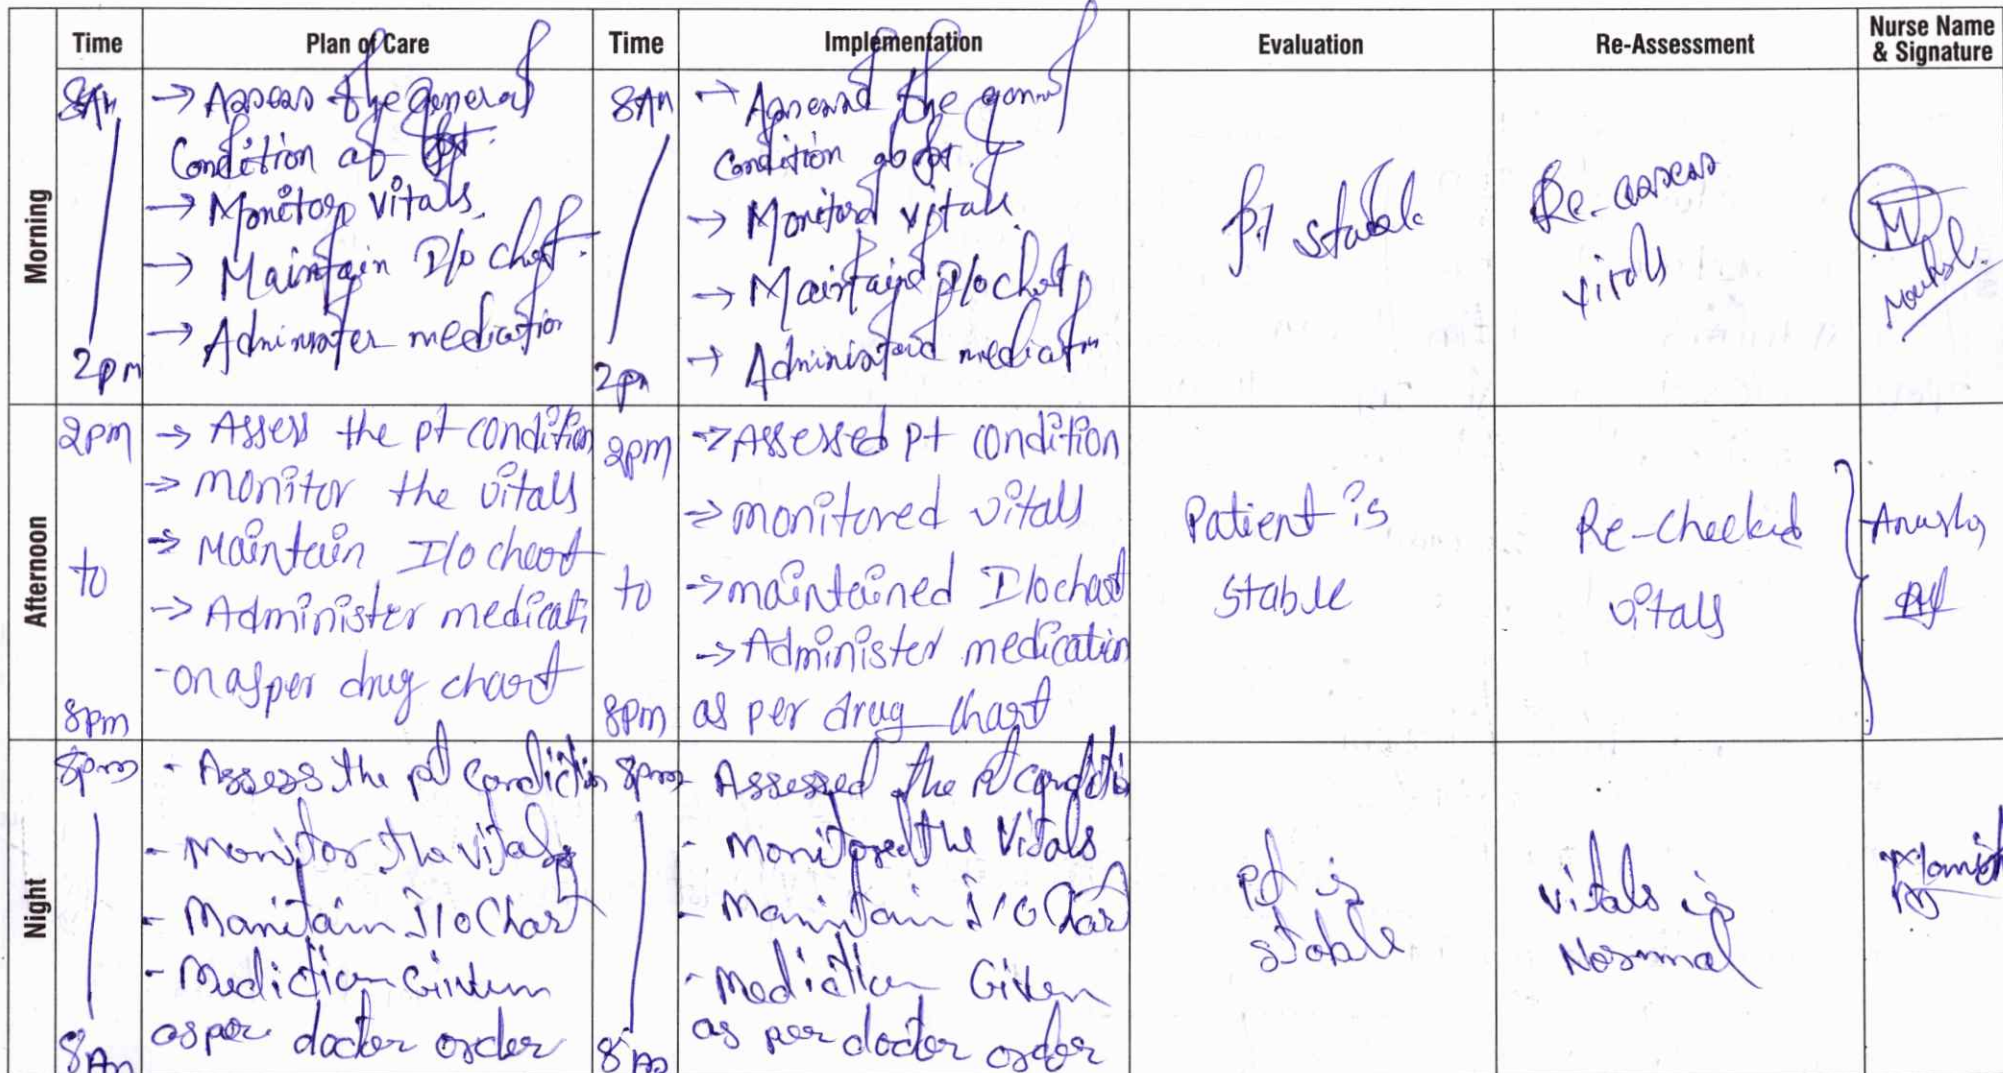 Time Plan of Care Time Implementation Evaluation Re-Assessment Nurse Name & Signature
Morning
8AM
2pm
→ Assess the general
Condition of pt.
→ Monitor vitals.
→ Maintain I/o chart.
→ Administer medication
8AM
2pm
→ Assessed the general
Condition of pt.
→ Monitored vitals.
→ Maintained I/o chart
→ Administered medication
Pt stable
Re-assess
vitals
Afternoon
2pm
to
8pm
→ Assess the pt condition
→ monitor the vitals
→ Maintain I/o chart
→ Administer medicati
-on as per drug chart
2pm
to
8pm
→ Assessed pt condition
→ monitored vitals
→ maintained I/o chart
→ Administer medication
as per drug chart
Patient is
stable
Re-checked
vitals
Night
8pm
8Am
- Assess the pt Condiction
- Monitor the vitals
- Manitain I/o Chart
- Mediction Given
as per doctor order
8pm
8Am
- Assessed the pt condition
- Monitored the Vitals
- Manitain I/o Chart
- Mediction Given
as per doctor order
Pt is
stable
Vitals is
Normal